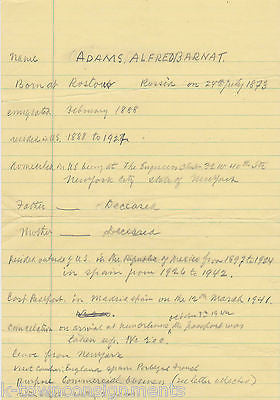 Name ADAMS, ALFRED BARNAT.
Born at Rostov Russia on 28th July 1873
emigrated February 1888
resided in U.S. 1888 to 1927
Domiciled in US being at The Engineers Club 32 W 40th St
New York City State of New York
Father Deceased
Mother Deceased
Resided outside of U.S. in the Republic of Mexico from 1897 to 1904
in Spain from 1926 to 1942.
Last Passport, in Madrid Spain on the 12th March 1941.
Cancelation on arrival at New Orleans the passport was
taken up. No 200.
leave from New York
visit Countries England Spain Portugal French
purpose Commercial business (see letter attached)
k-townconsignments.com